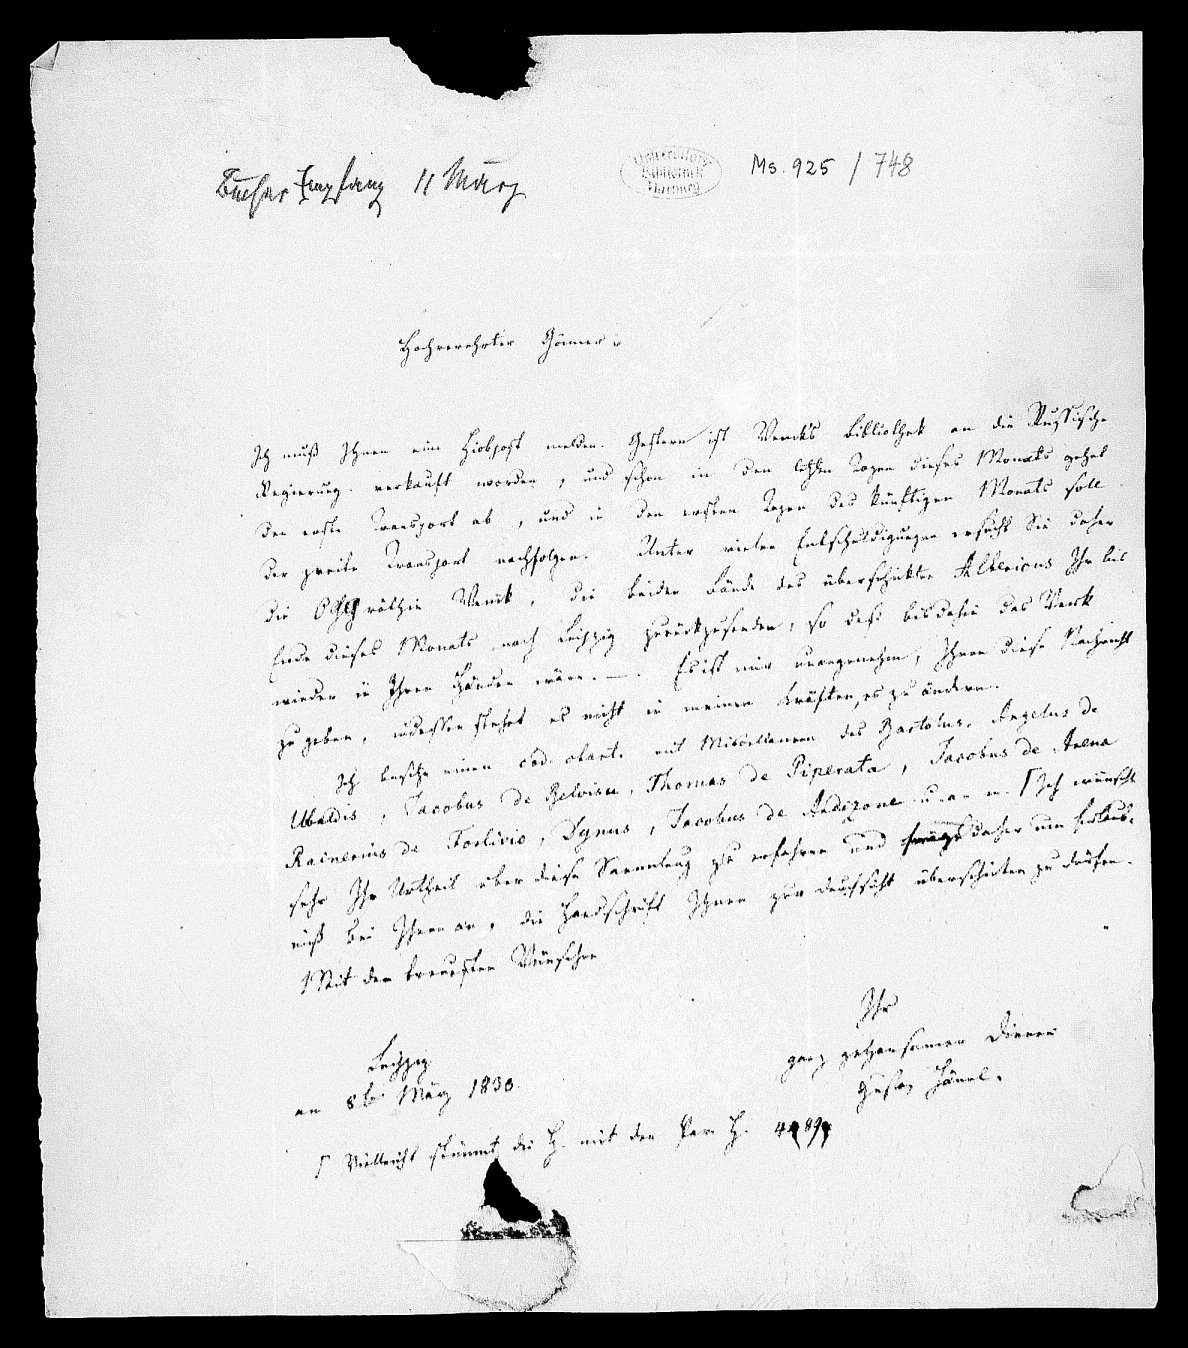 Bücher Empfang 11 März
Universitäts-
Bibliothek
Marburg
Ms. 925 / 748
Hochverehrter Gönner
Ich muß Ihnen eine Hiobspost melden. Gestern ist Wencks Bibliothek an die Russische
Regierung verkauft worden, und schon in den letzten Tagen dieses Monats gehet
der erste Transport ab, und in den ersten Tagen des künftigen Monats soll
der zweite Transport nachfolgen. Unter vielen Entschuldigungen ersucht Sie daher
die Wenck, die beiden Bände des überschickten Albericus Ihr bis
Ende dieses Monats nach Leipzig zurückzusenden, so daß bis dahin das Werk
wieder in Ihren Händen wäre. —. Es ist mir unangenehm, Ihnen diese Nachricht
zu geben, indessen stehet es nicht in meinen Kräften, es zu ändern.
Ich besitze einen cod. chart. mit Miscellaneen des Bartolus, Angelus de
Ubaldis, Jacobus de Belvisu, Thomas de Piperata, Jacobus de Arena
Rainerius de Forlivio, Dynus, Jacobus de Ardizone u. a. m. Γ Ich wünschte
sehr Ihr Urtheil über diese Sammlung zu erfahren und daher um Erlaub-
niß bei Ihnen an, die Handschrift Ihnen zur Durchsicht überschicken zu dürfen.
Mit den treuesten Wünschen
Ihr
ganz gehorsamer Diener
Gustav Hänel.
Leipzig
am 8ten März 1830.
Γ Vielleicht stimmt die H. mit der Par. H. 4489